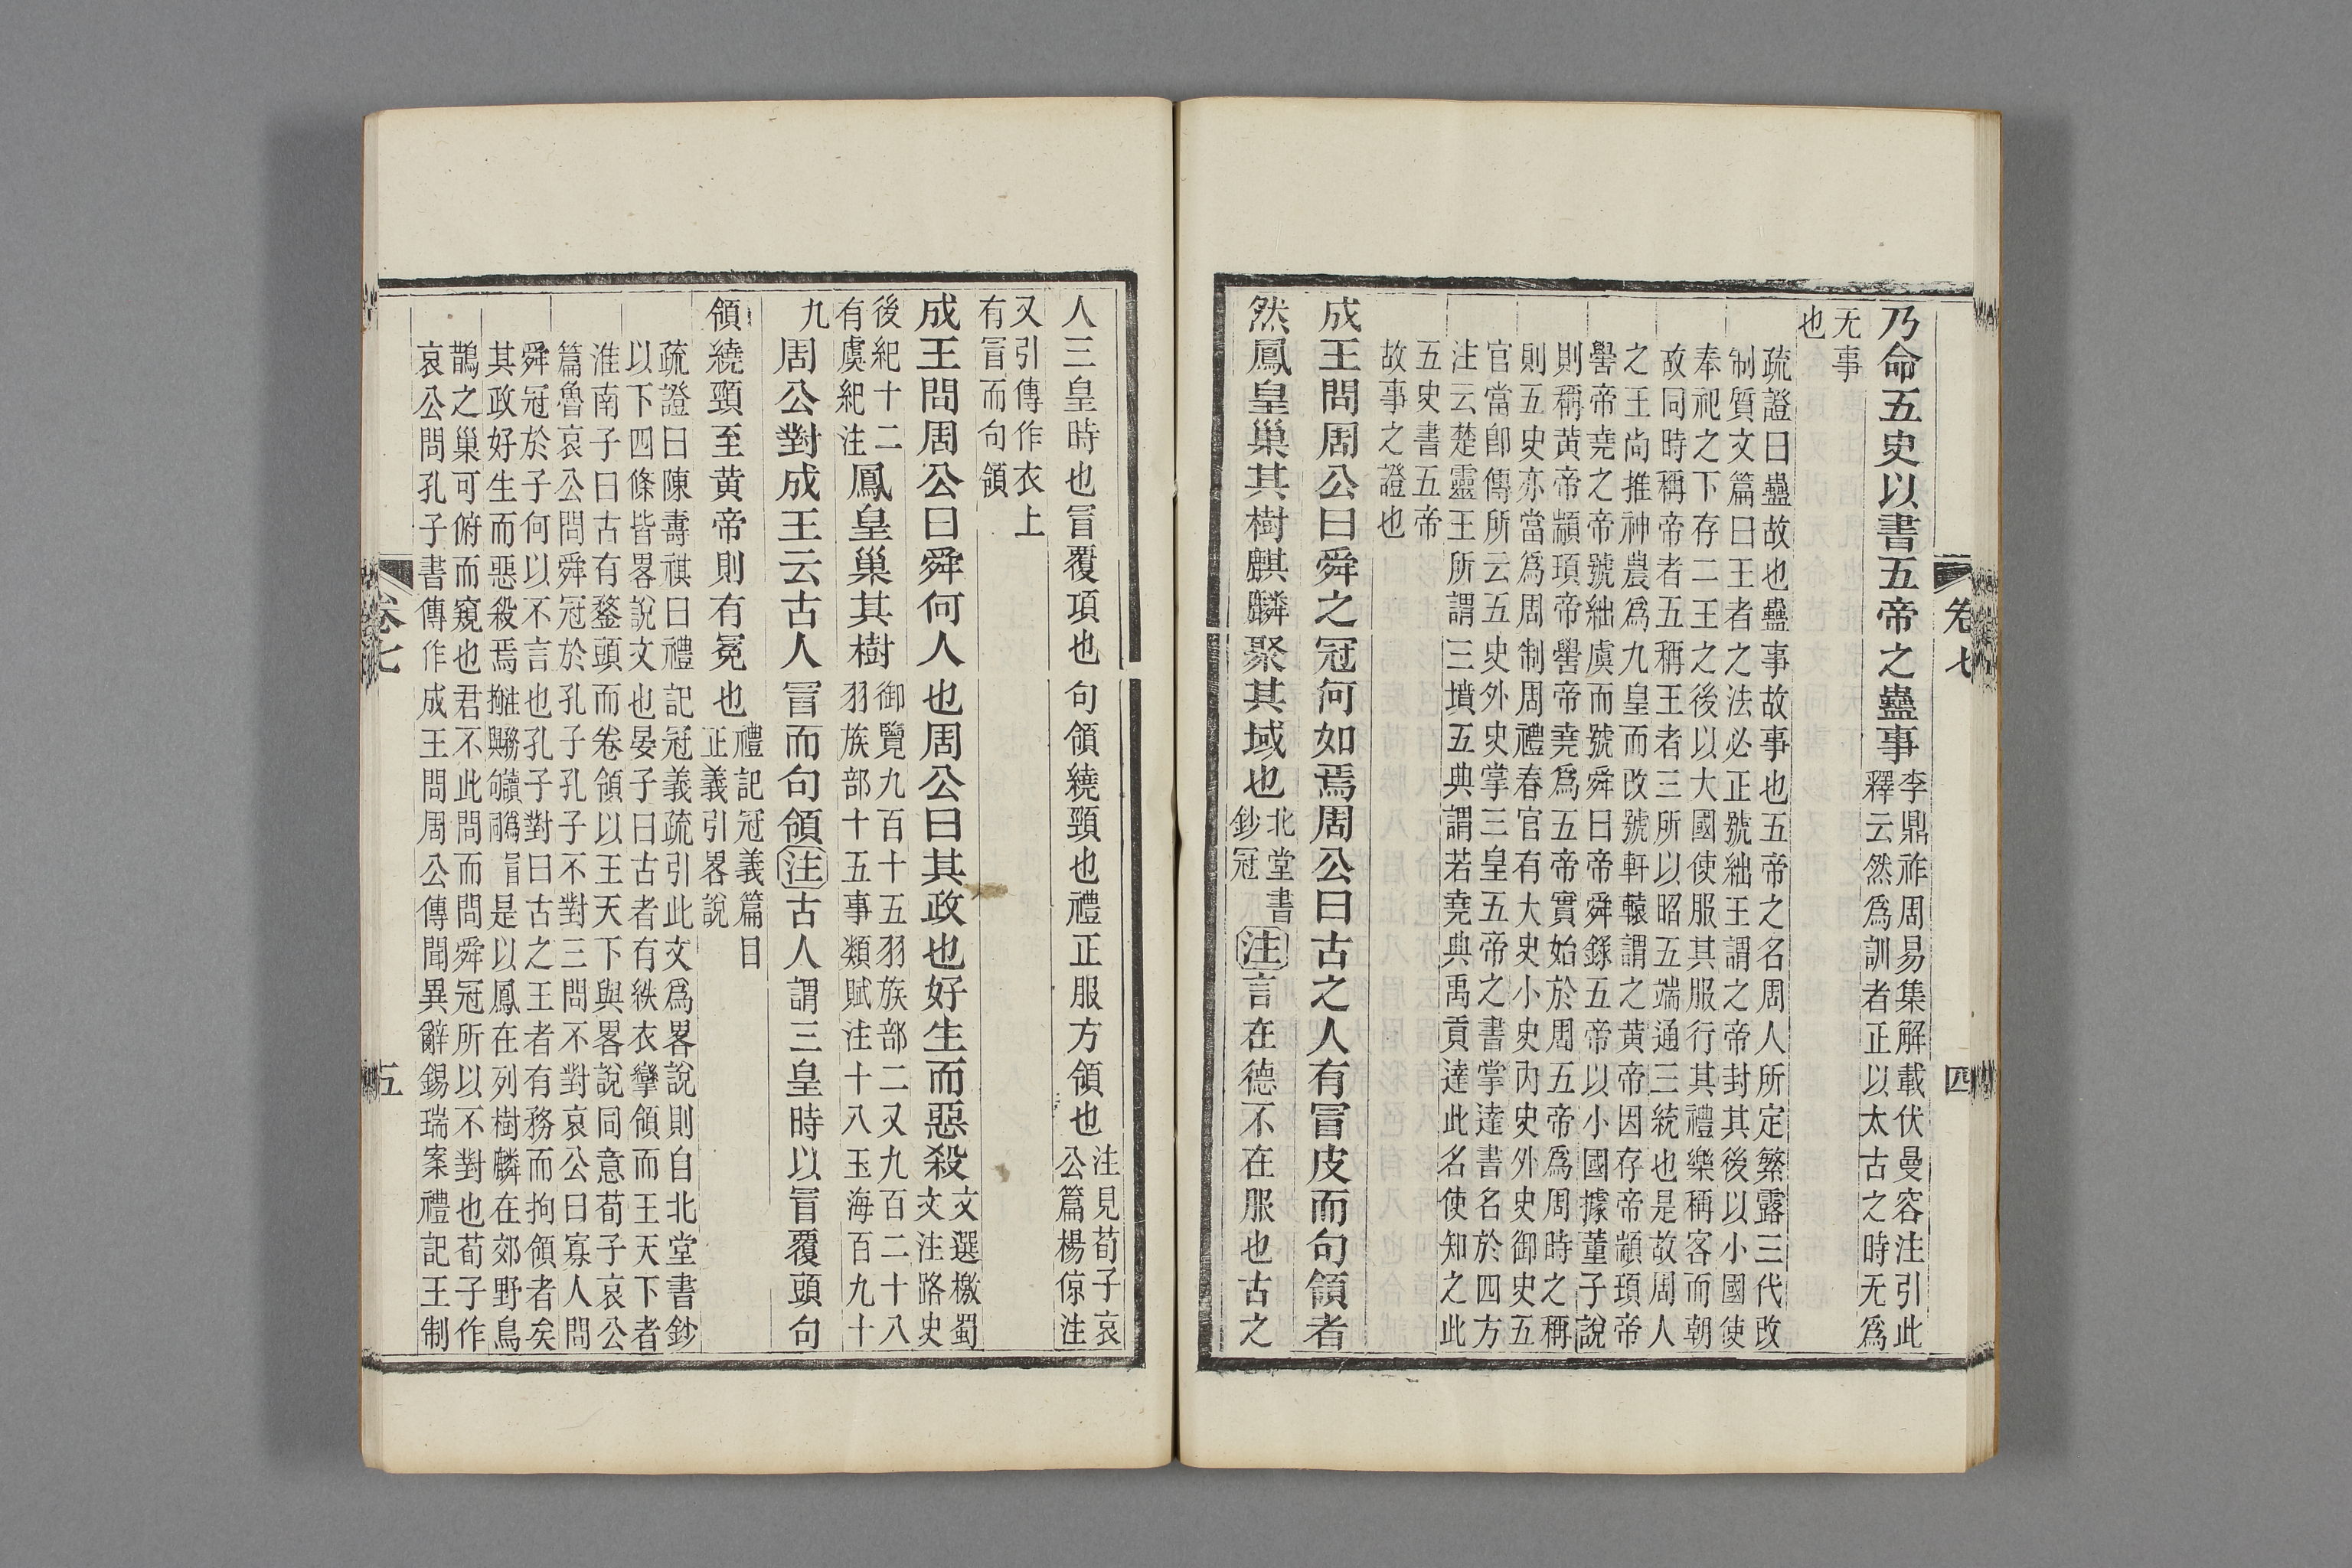 乃命五史以書五帝之蠱事李鼎祚周易集解載伏曼容注引此
釋云然爲訓者正以太古之時无爲
无事
也
疏證曰蠱故也蠱事故事也五帝之名周人所定繁露三代改
制質文篇曰王者之法必正號絀王謂之帝封其後以小國使
奉祀之下存二王之後以大國使服其服行其禮樂稱客而朝
故同時稱帝者五稱王者三所以昭五端通三統也是故周人
之王尚推神農爲九皇而改號軒轅謂之黄帝因存帝顓頊帝
嚳帝堯之帝號絀虞而號舜曰帝舜錄五帝以小國據董子說
則稱黄帝顓頊帝嚳帝堯爲五帝實始於周五帝爲周時之稱
則五史亦當爲周制周禮春官有大史小史內史外史御史五
官當卽傳所云五史外史掌三皇五帝之書掌達書名於四方
注云楚靈王所謂三墳五典謂若堯典禹貢達此名使知之此
五史書五帝
故事之證也
成王問周公曰舜之冠何如焉周公曰古之人有冒皮而句領者
然鳳皇巢其樹麒麟聚其域也北堂書
鈔冠
注言在德不在服也古之
卷七
四
人三皇時也冒覆項也句領繞頸也禮正服方領也注見荀子哀
公篇楊倞注
又引傳作衣上
有冒而句領
成王問周公曰舜何人也周公曰其政也好生而惡殺文選檄蜀
文注路史
後紀十二
有虞紀注
鳳皇巢其樹御覽九百十五羽族部二又九百二十八
羽族部十五事類賦注十八玉海百九十
九
周公對成王云古人冒而句領注古人謂三皇時以冒覆頭句
領繞頸至黄帝則有冕也禮記冠義篇目
正義引畧說
疏證曰陳壽祺曰禮記冠義疏引此文爲畧說則自北堂書鈔
以下四條皆畧說文也晏子曰古者有紩衣攣領而王天下者
淮南子曰古有鍪頭而卷領以王天下與畧說同意荀子哀公
篇魯哀公問舜冠於孔子孔子不對三問不對哀公曰寡人問
舜冠於子何以不言也孔子對曰古之王者有務而拘領者矣
其政好生而惡殺焉是以鳳在列樹麟在郊野烏
鵲之巢可俯而窺也君不此問而問舜冠所以不對也荀子作
哀公問孔子書傳作成王問周公傳聞異辭錫瑞案禮記王制
卷七
五